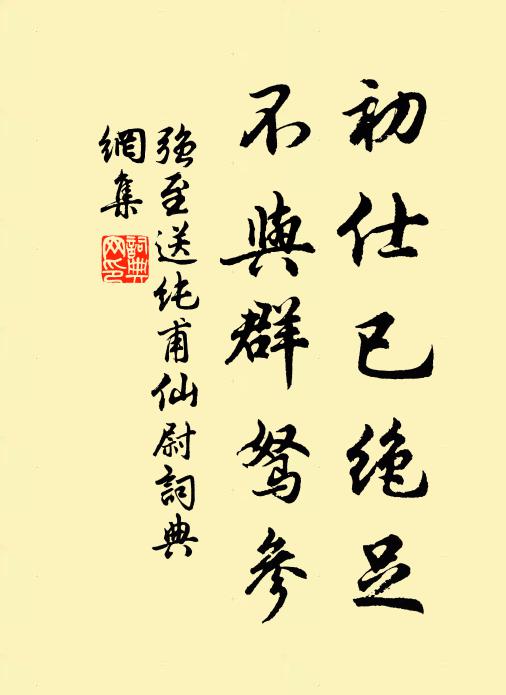 初仕已絶足
不與群駑參
強至送純甫仙尉詞典
網集
詞典網印